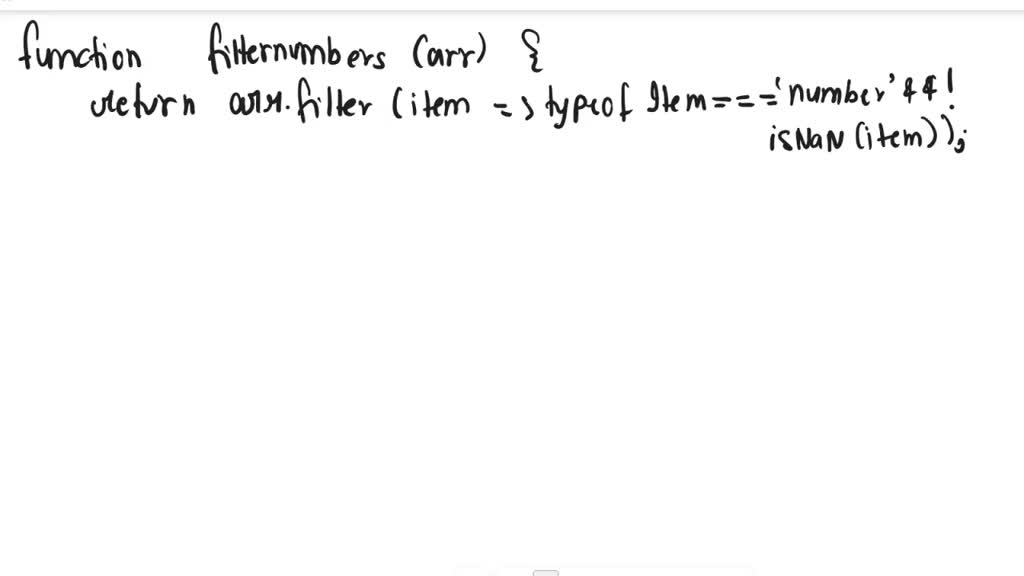 function filternumbers (arr) {
return arr.filter (item => typeof Item==='number' && !
isNaN (item));